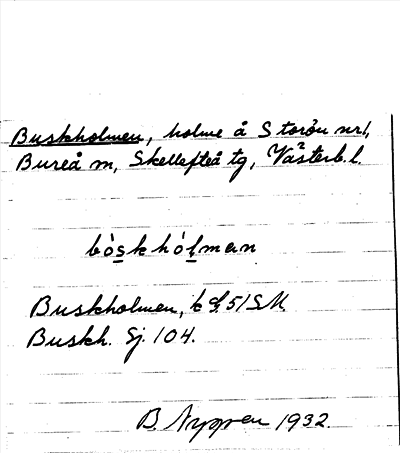 Buskholmen, holme å Storön nr 1,
Bureå sn, Skellefteå tg, Västerb. l.
bòskhólmen
Buskholmen, 51 SM
Buskh. Sj. 104.
B. Nygren 1932.